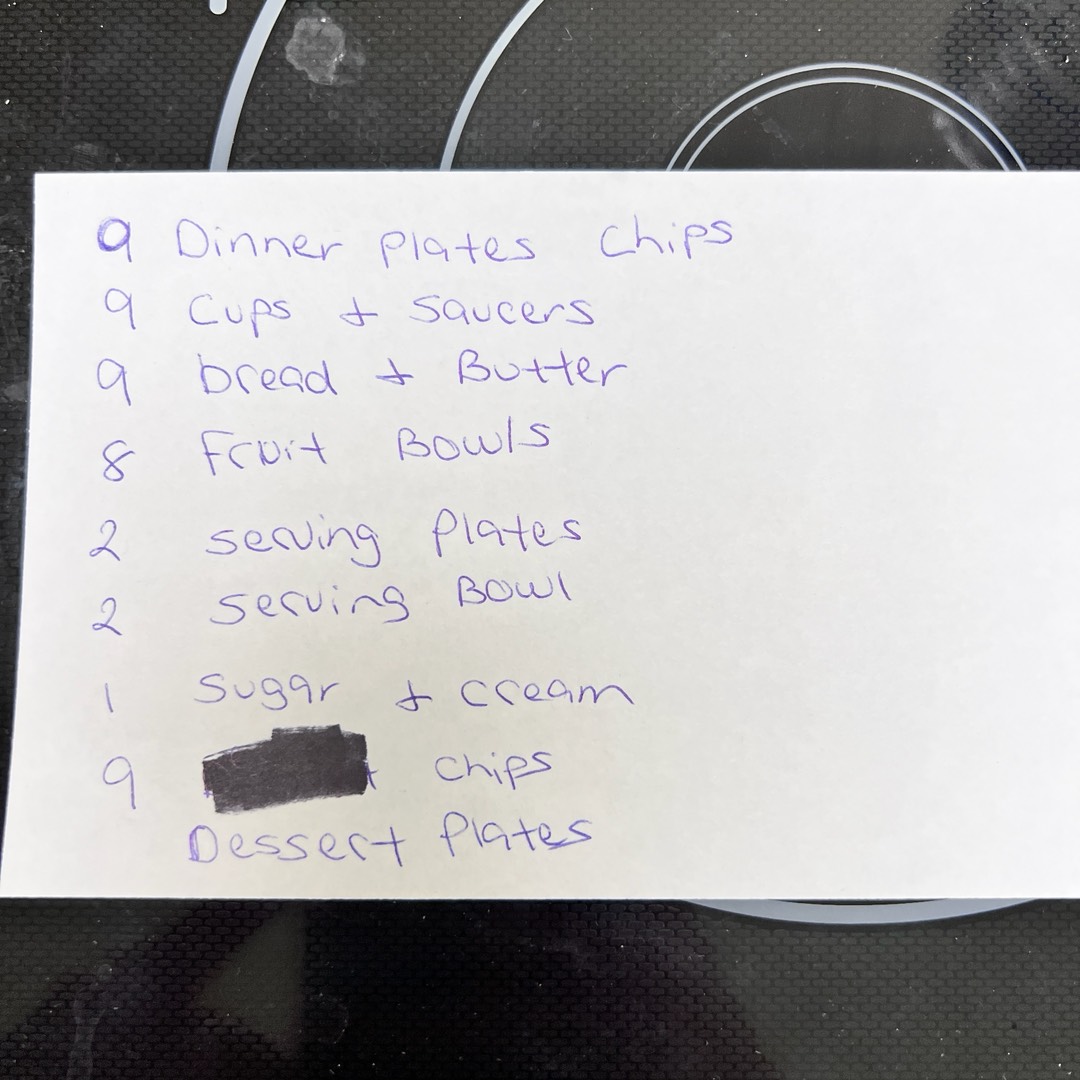 9 Dinner Plates Chips
9 Cups + Saucers
9 bread + Butter
8 Fruit Bowls
2 serving Plates
2 serving Bowl
1 Sugar + cream
9 chips
Dessert Plates